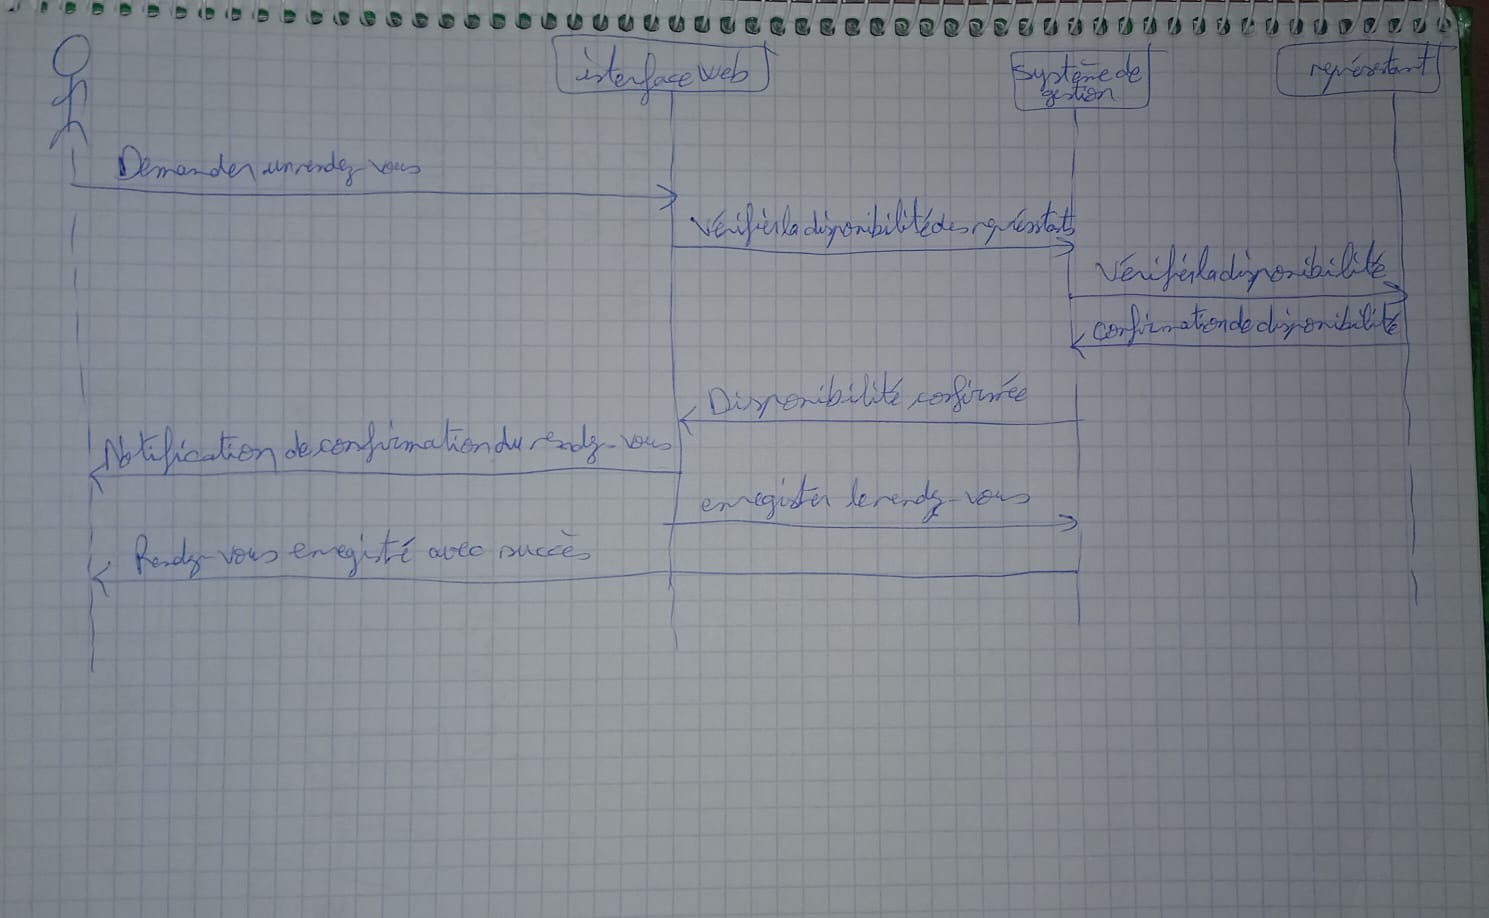 interface web
Système de
gestion
représentant
Demander un rendez-vous
Vérifier la disponibilité des représtants
Vérifier la disponibilité
confirmation de disponibilité
Disponibilité confirmée
Notification de confirmation du rendez-vous
enregister le rendez-vous
Rendez-vous enregisté avec succès